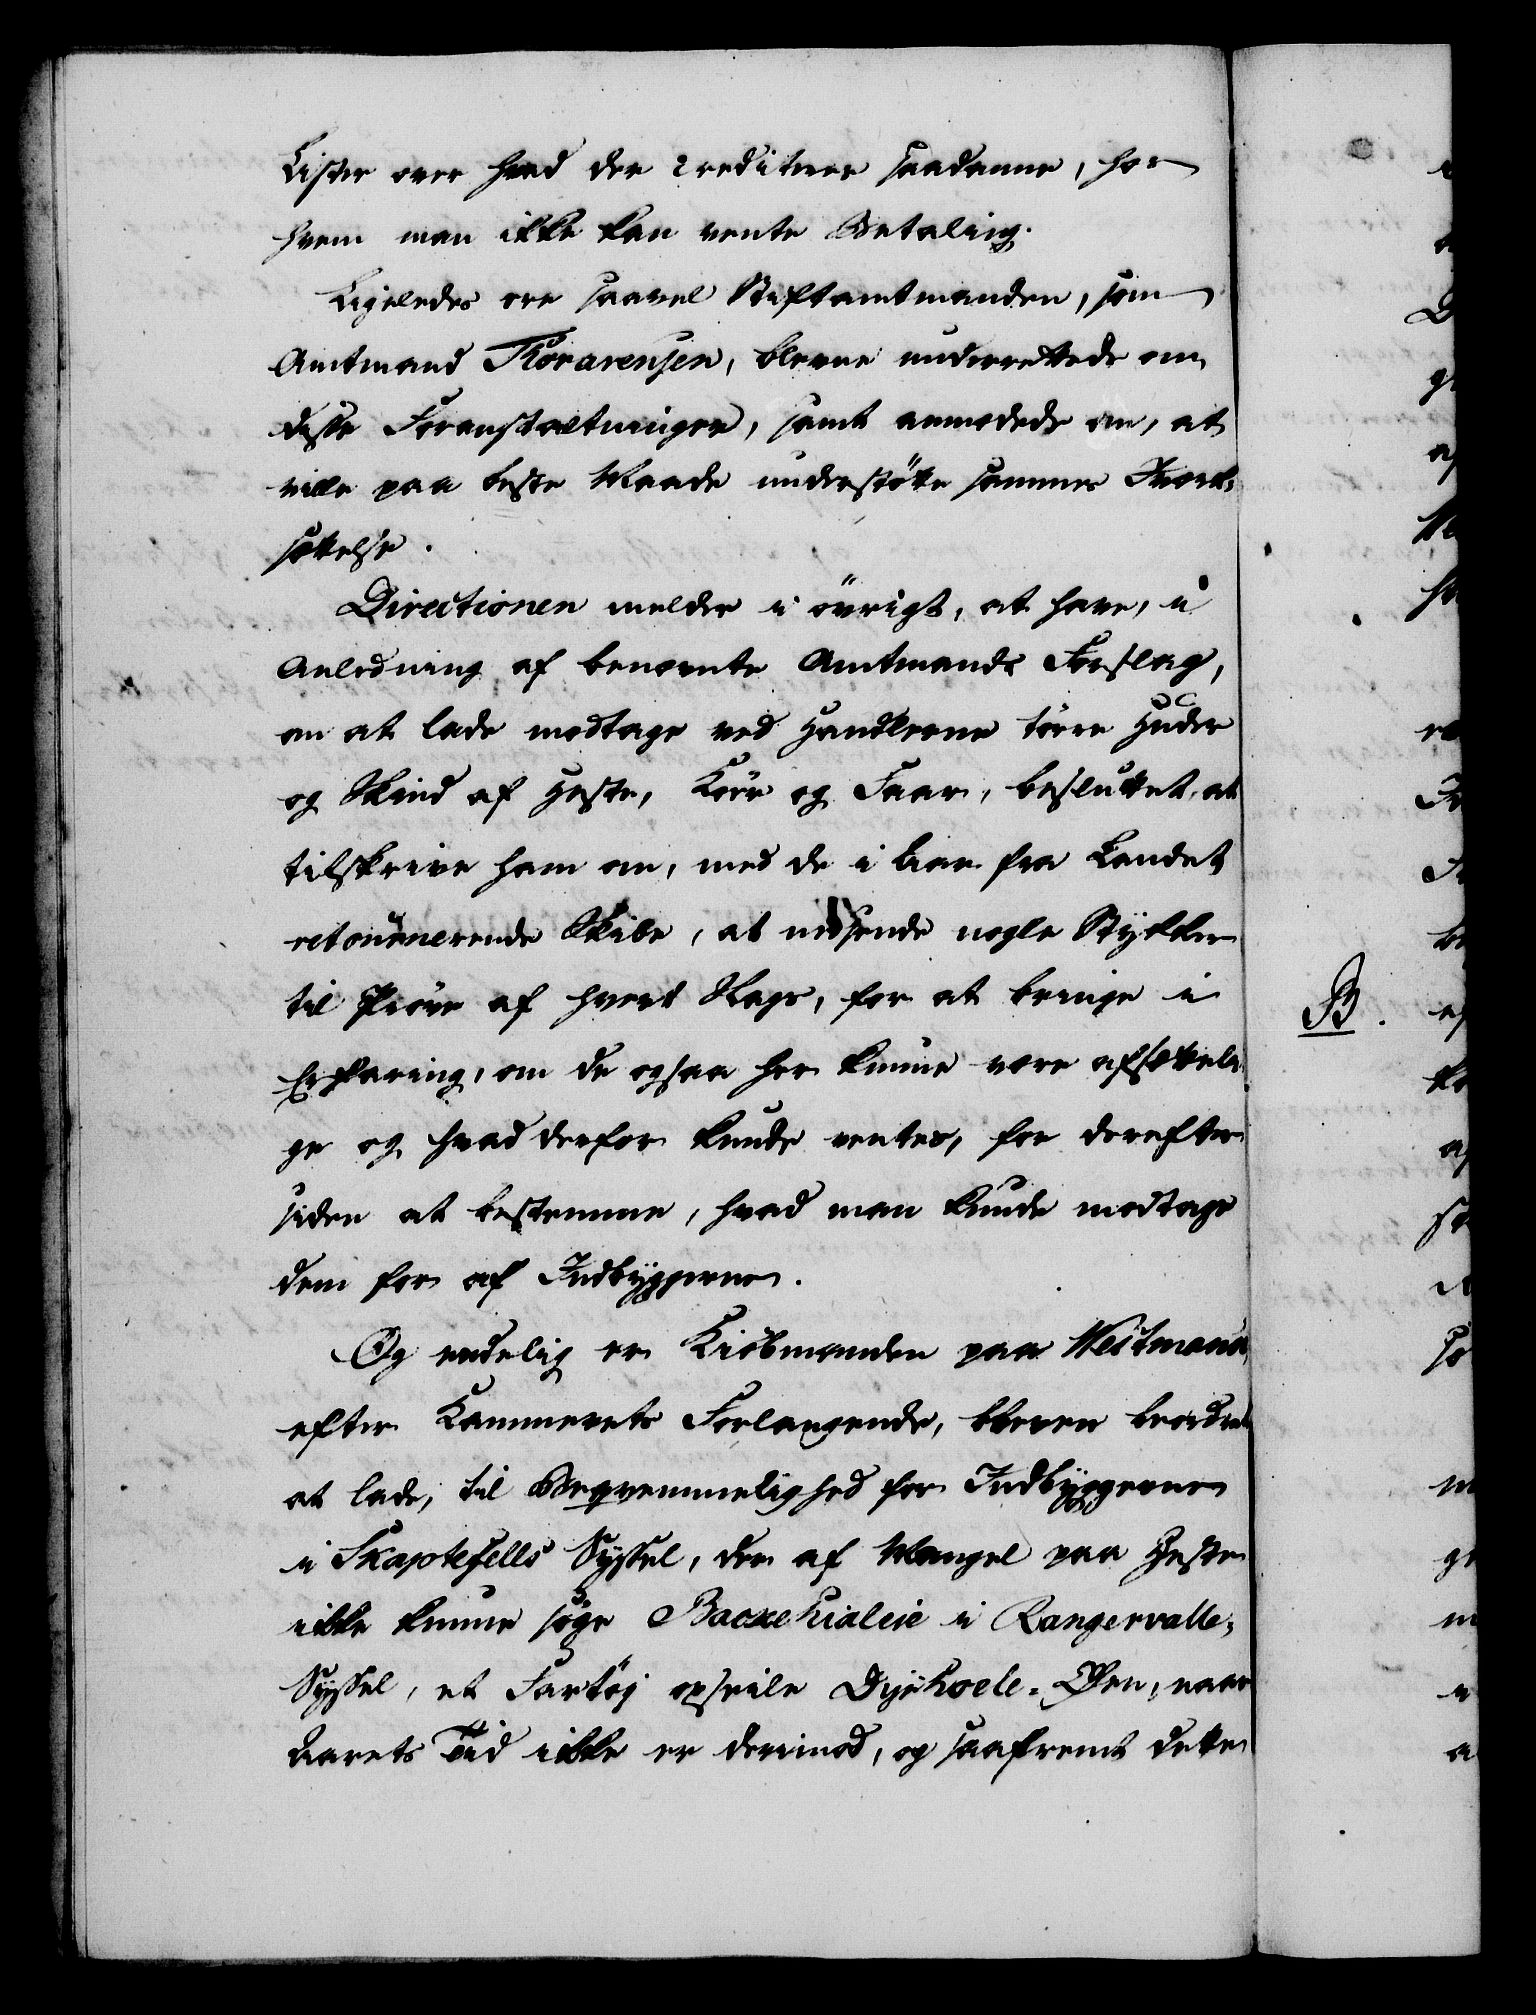 Lister over hvad der crediteres saadanne, hos
hvem man ikke kan vente Betaling.
Ligeledes ere saavel Stiftamtmanden, som
Amtmand Thorarensen, blevne underrettede om
disse Foranstaltninger, samt anmodede om, at
ville paa beste Maade understötte sammes Iværk-
sættelse.
Directionen melder i övrigt, at have, i
Anledning af benævnte Amtmands Forslag,
om at lade modtage ved Handlerne törre Huder
og Skind af Heste, Köer og Faar, besluttet, at
tilskrive ham om, med de i Aar fra Landet
retournerende Skibe, at nedsende nogle Stykker
til Pröve af hvert Slags, for at bringe i
Erfaring, om de ogsaa her kunne være afsætteli-
ge og hvad derfor kunde ventes, for derefter
siden at bestemme, hvad man kunde modtage
dem for af Indbyggerne.
Og endelig er Kiöbmanden paa Westmanö,
efter Kammerets Forlangende, bleven beordret
at lade, til Beqvemmelighed for Indbyggerne
i Skaptefells Syssel, der af Mangel paa Heste
ikke kunne söge Backehialeie i Rangervalle-
Syssel, et Fartöj opseile Dyrhoele-Öen, naar
Aarets Tid ikke er derimod, og saafremt dette
B.